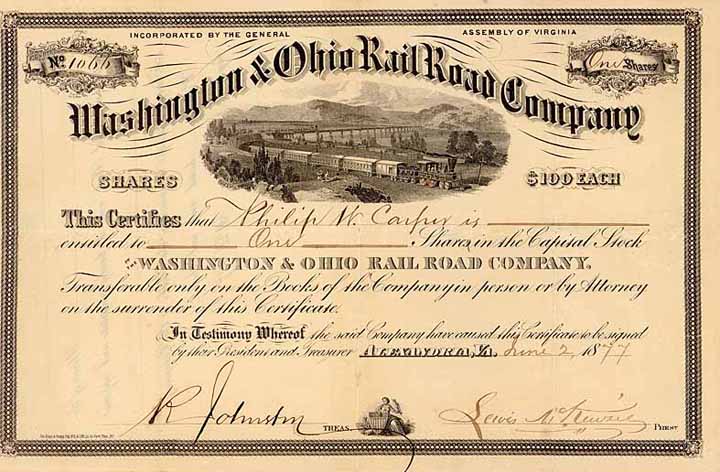 INCORPORATED BY THE GENERAL ASSEMBLY OF VIRGINIA
No. 1066
One Shares
Washington & Ohio Rail Road Company
SHARES
$100 EACH
This Certifies that Philip W. Carper is
entitled to One Shares, in the Capital Stock
of the WASHINGTON & OHIO RAIL ROAD COMPANY.
Transferable only on the Books of the Company in person or by Attorney
on the surrender of this Certificate.
In Testimony Whereof the said Company have caused this Certificate to be signed
by their President and Treasurer ALEXANDRIA, VA. June 2, 1877
R Johnston TREAS.
Lewis McKenzie PREST